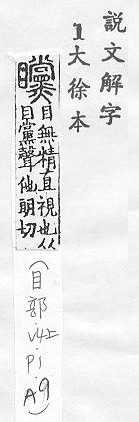 説文解字
1大徐本
矘
目無精直視也从
目黨聲他朗切
(目部.V4上.P1.A9)